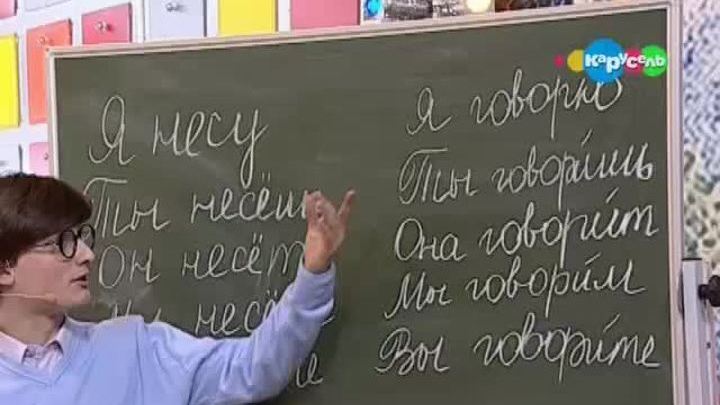 карусель
Я несу
Ты несёш
Он несёт
несё
е
Я говорю
Ты говори́шь
Она говори́т
Мы говори́м
Вы говори́те